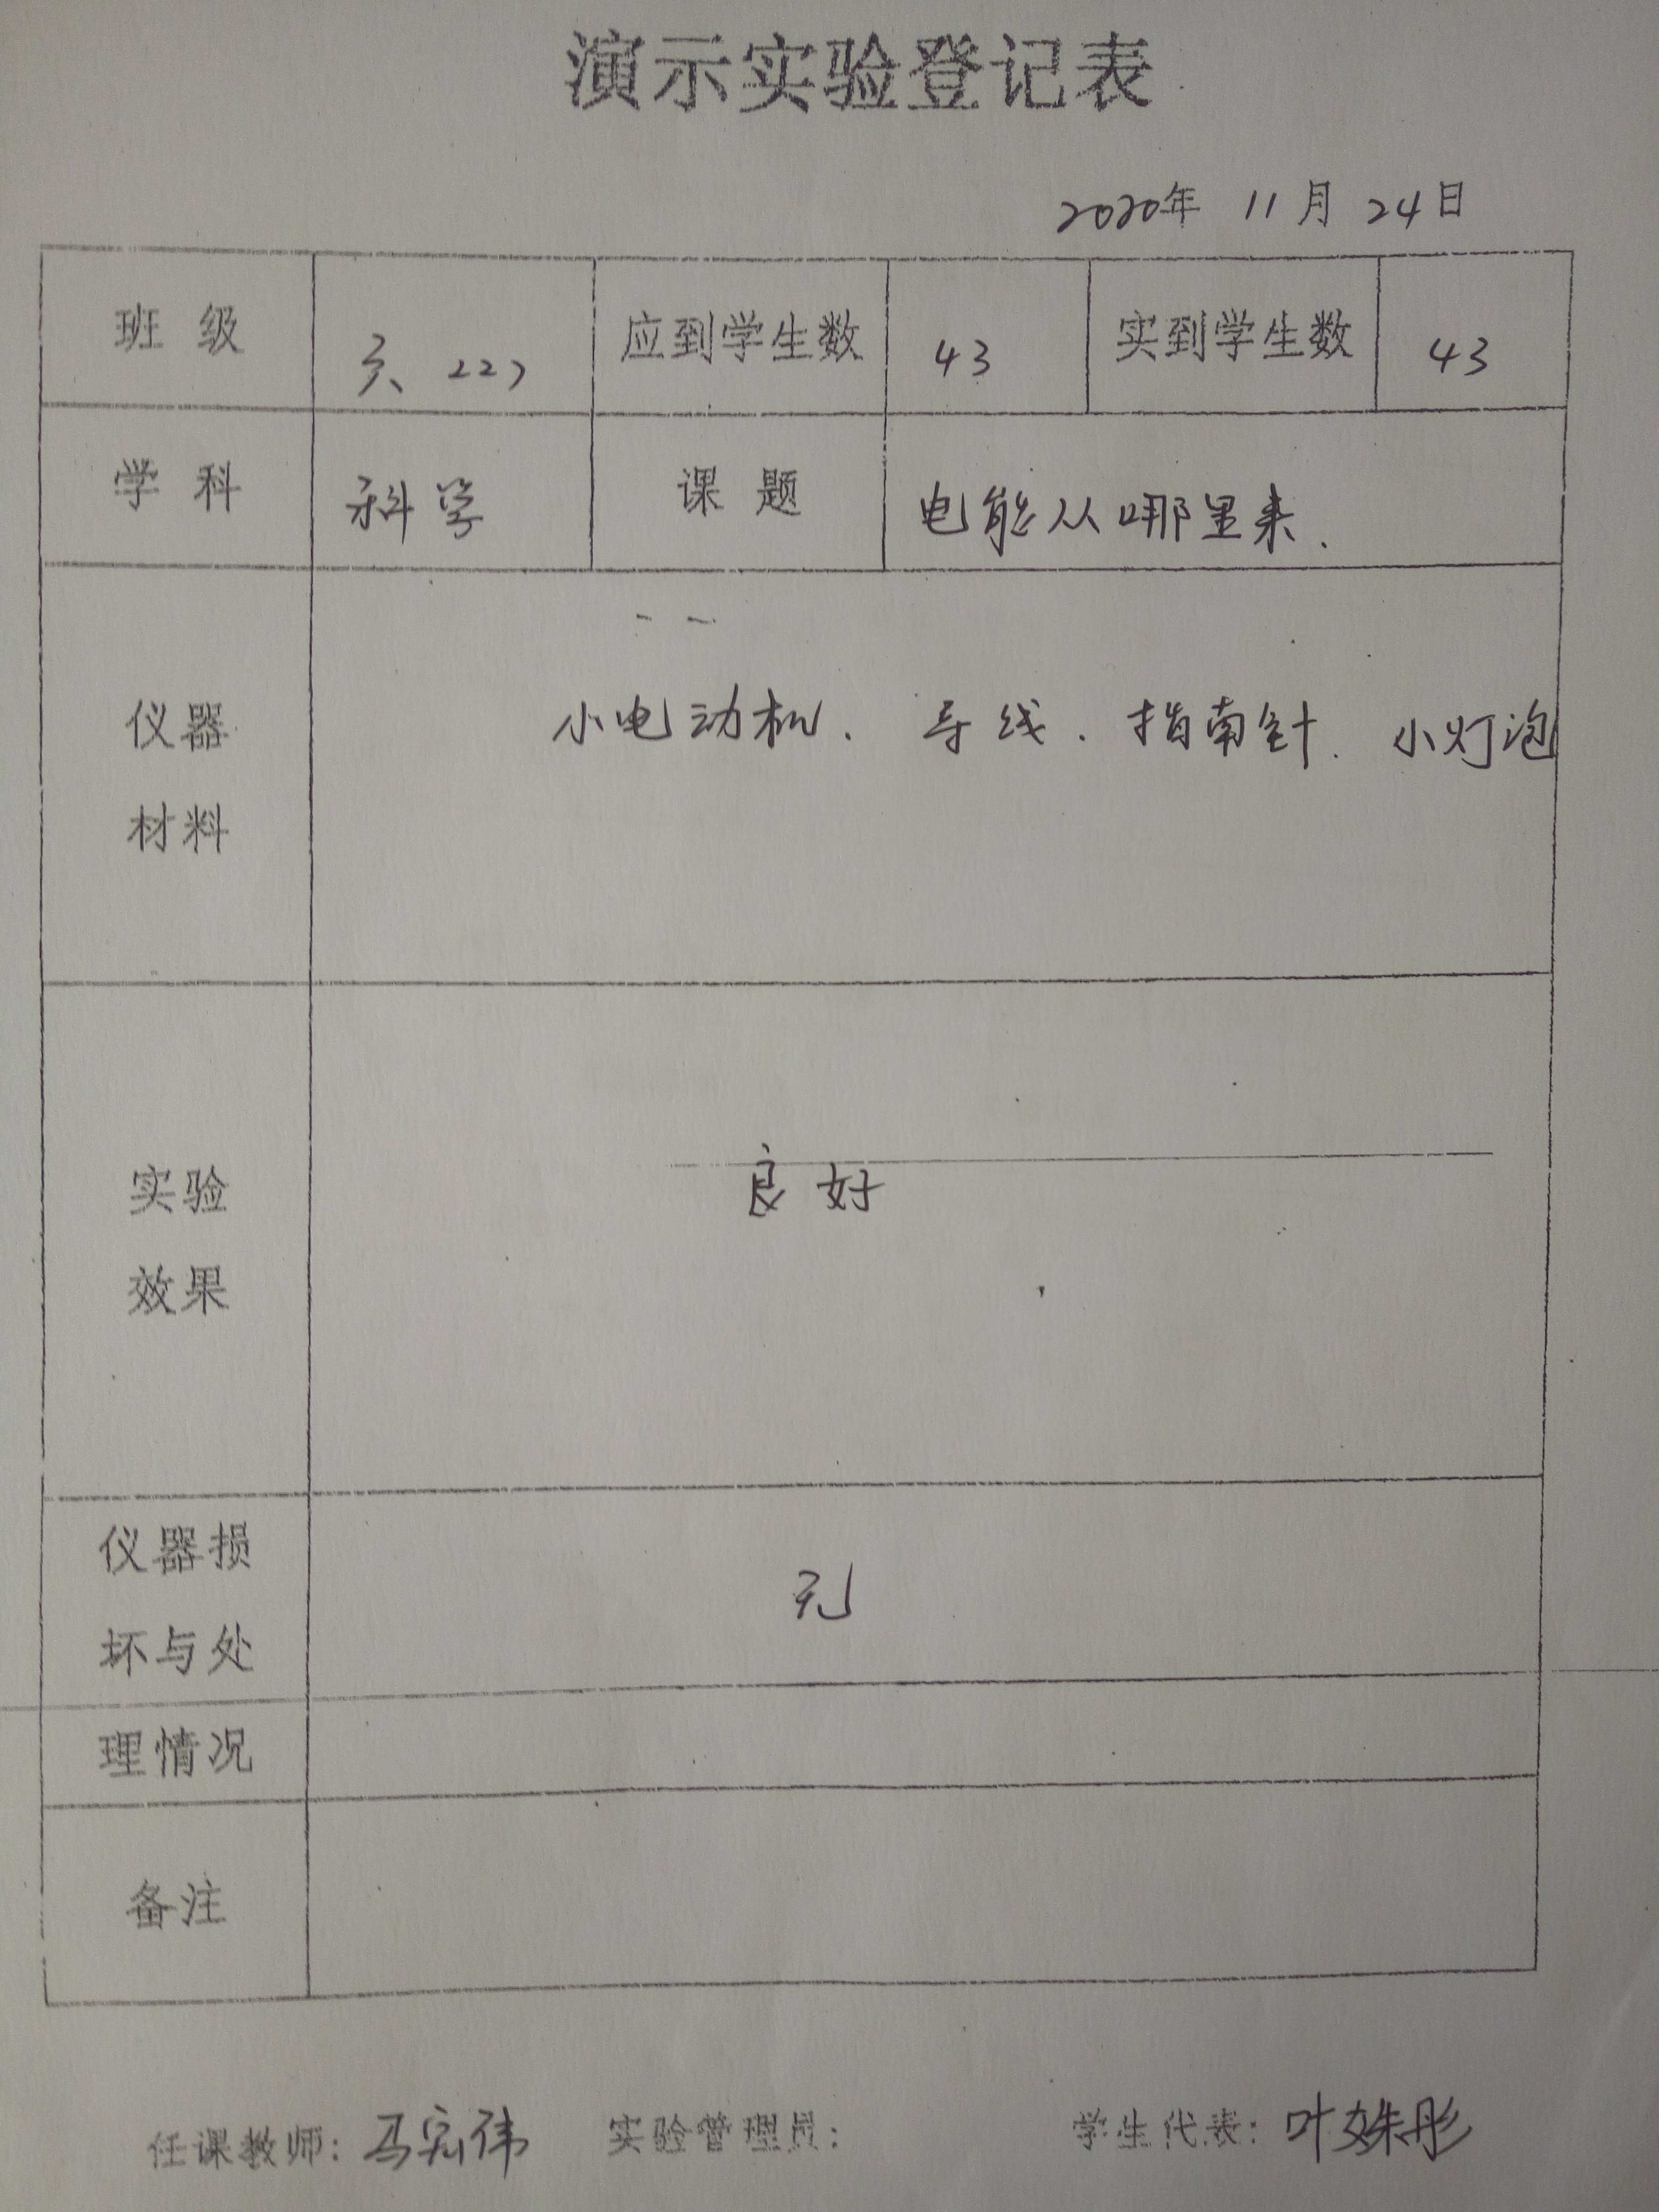 演示实验登记表
2020年 11月 24日
班 级 六、(2) 应到学生数 43 实到学生数 43
学 科 科学 课 题 电能从哪里来.
仪器 小电动机. 导线. 指南针. 小灯泡
材料
实验 良好
效果
仪器损 无
坏与处
理情况
备注
任课教师: 马宏伟 实验管理员: 学生代表: 叶姝彤